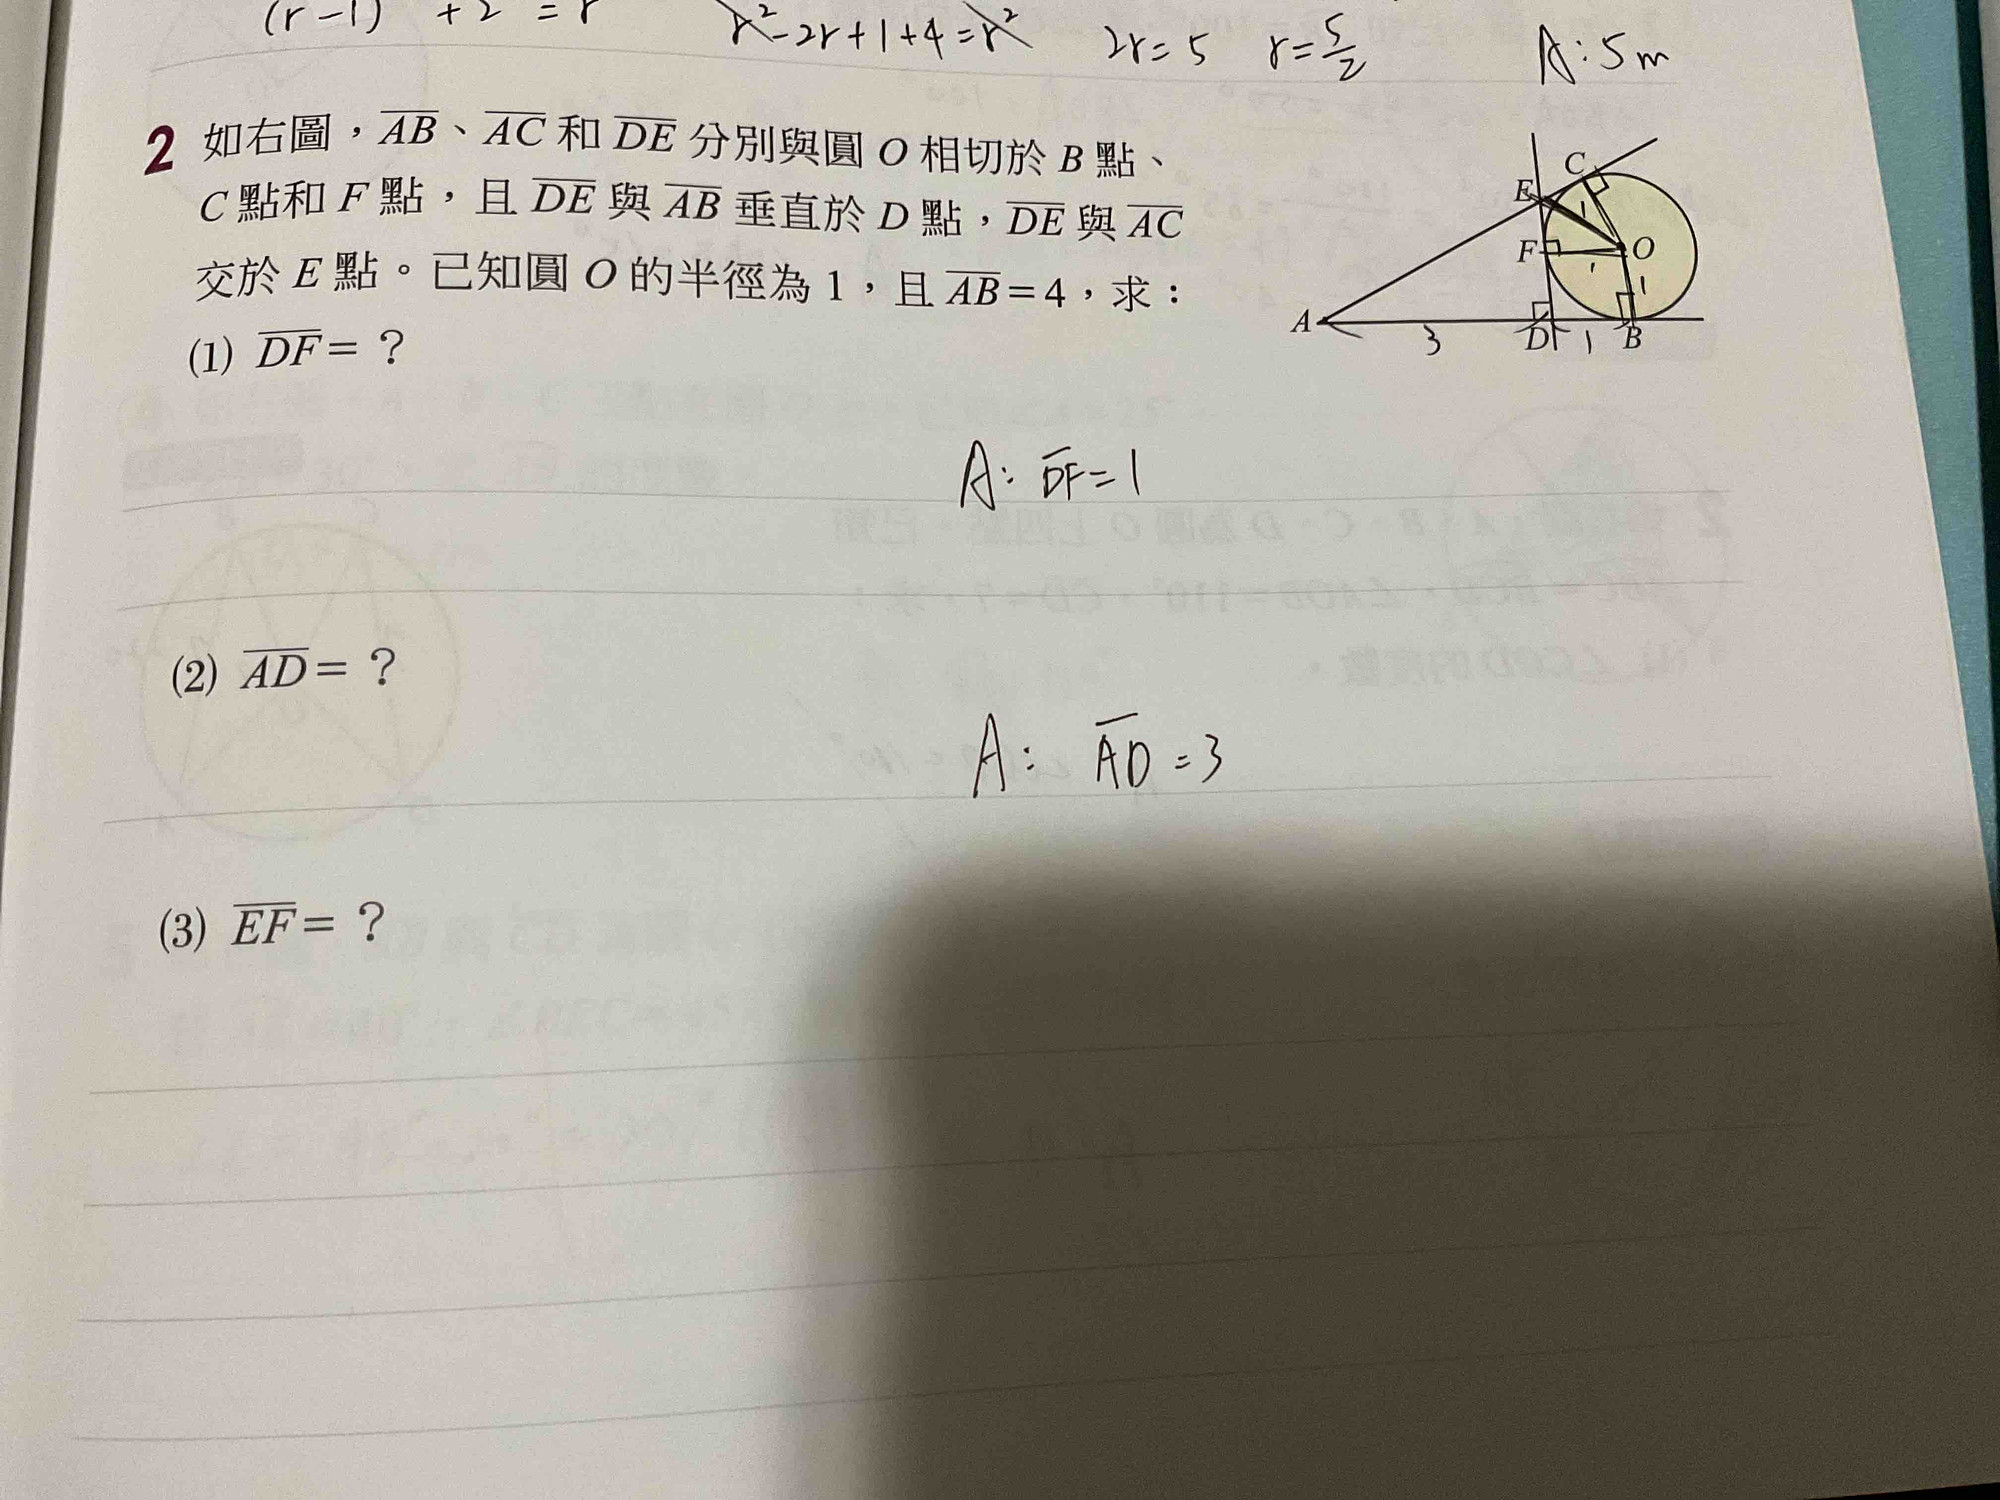 (r-1) + 2 = r r²-2r+1+4=r² 2r=5 r=5/2 A:5m
2 如右圖，AB、AC 和 DE 分別與圓 O 相切於 B 點、
C 點和 F 點，且 DE 與 AB 垂直於 D 點，DE 與 AC
交於 E 點。已知圓 O 的半徑為 1，且 AB=4，求：
(1) DF=？
C
E
1
F
O
1
1
A
3
D
1
B
A: DF=1
(2) AD=？
A: AD=3
(3) EF=？